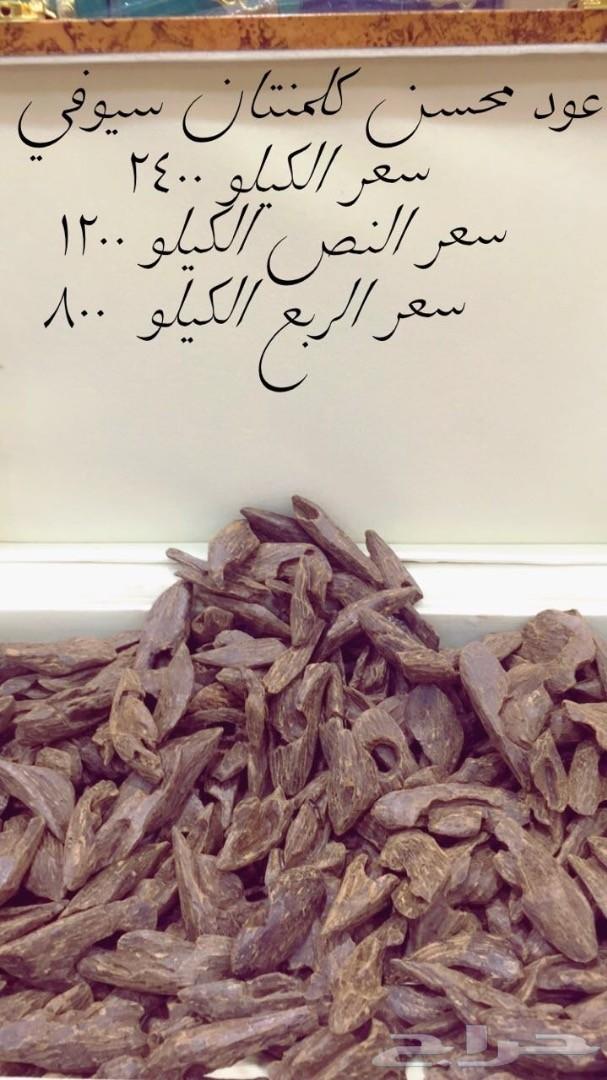 عود محسن كلمنتان سيوفي
سعر الكيلو ٢٤٠٠
سعر النص الكيلو ١٢٠٠
سعر الربع الكيلو ٨٠٠
حراج